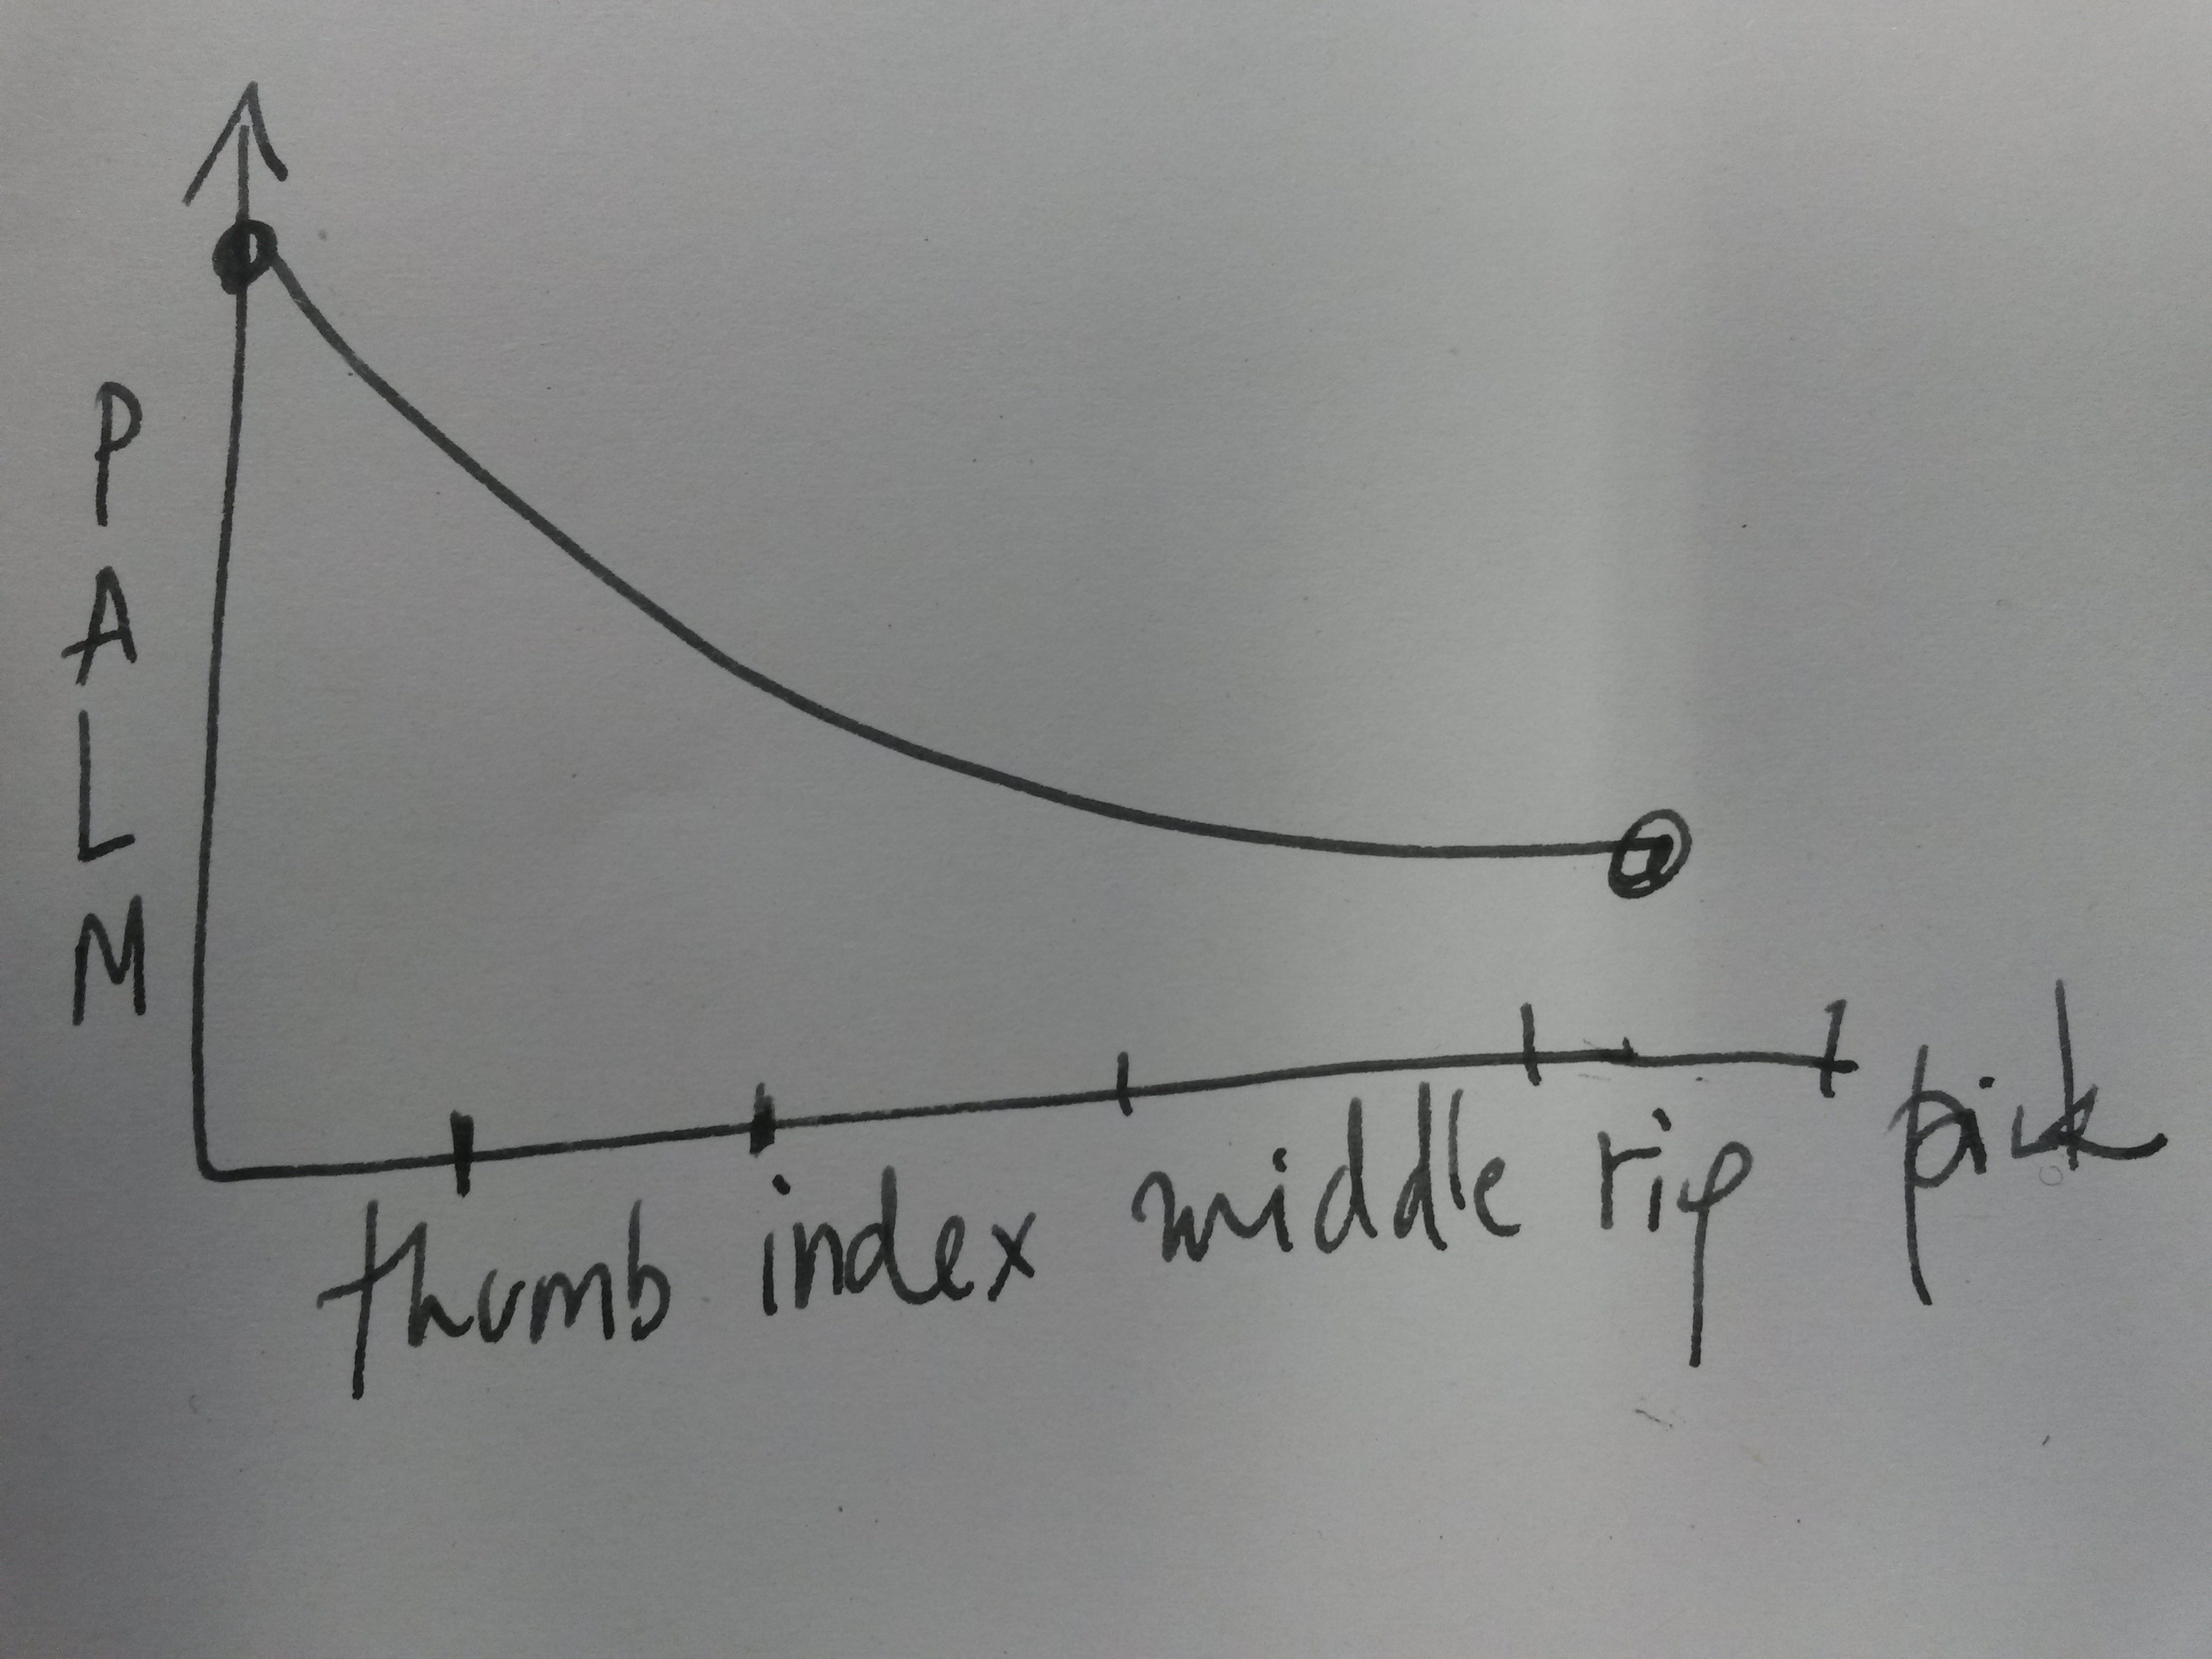 PALM
thumb index middle rip pick